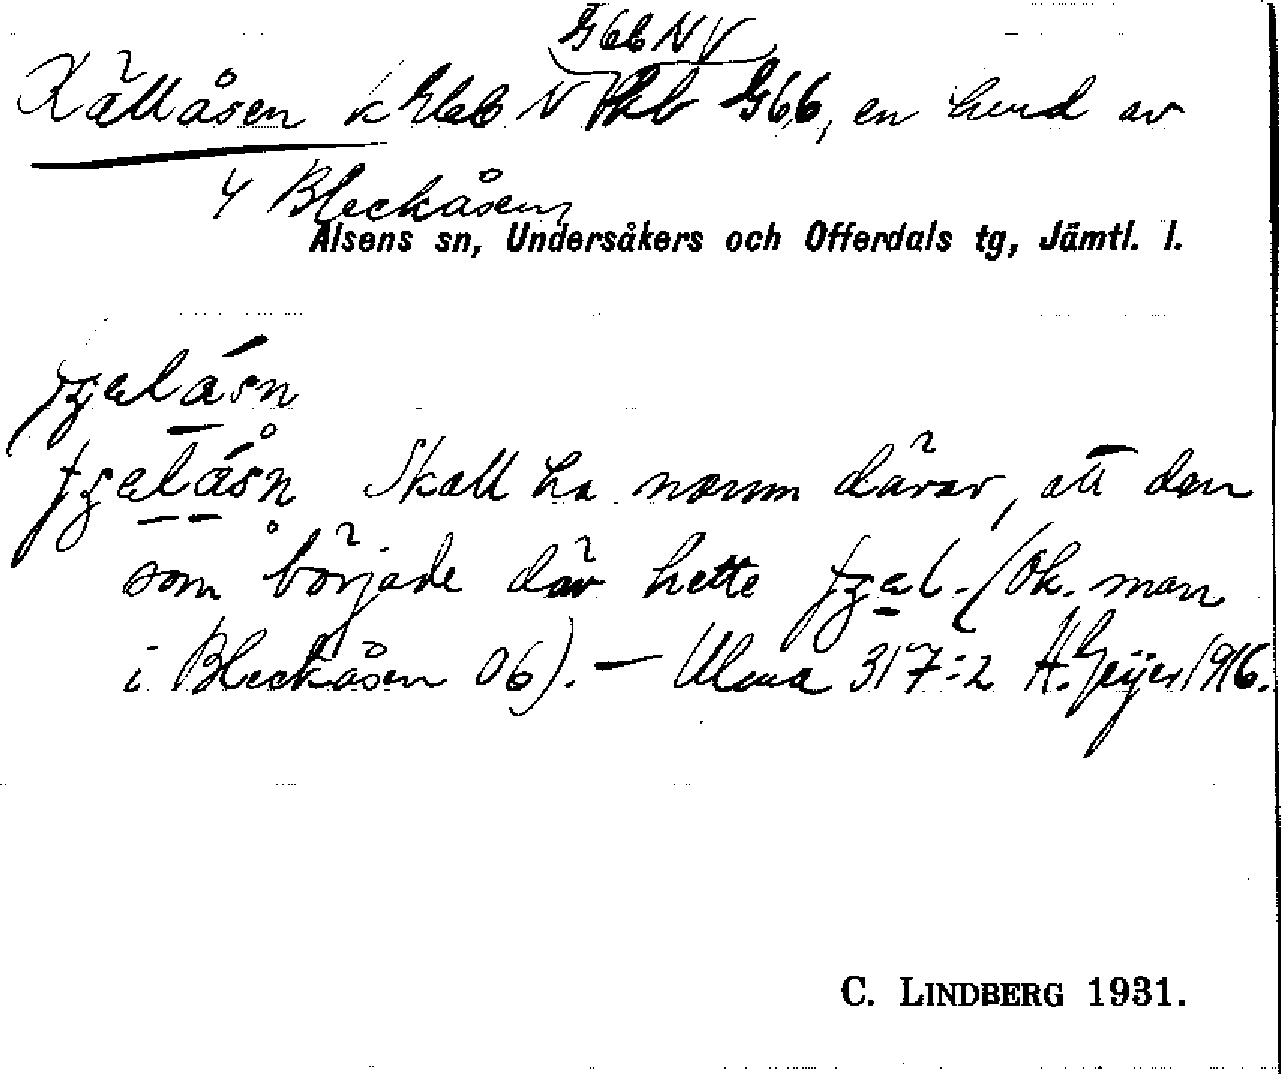 Gbl NV
Källåsen k Ebl N Gbb, en lund av
4 Bleckåsen,
Alsens sn, Undersåkers och Offerdals tg, Jämtl. l.
Skall ha namn därav, att den
som började där hette (Ok. man
i Bleckåsen 06). — Ulma 317:2 H. Geijer 1916.
C. LINDBERG 1931.